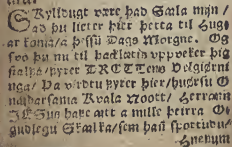 SKylldugt være þad Sæla mijn /
ad þu lieter hier þetta til Hug-
ar koma / a þ'ssū Dags Morgne. Og
svo þu nu til þacklætis uppveker þig
siálfa / fyrer DROTTens Velgiörni
nga / Þa virdtu fyrer þier / huørsu O
undarsama Kvala Noott / Herrann
JEsus hafe átt a mille þeirra O-
gudlegu Skalka / sem hañ spottudu /
Hnefum